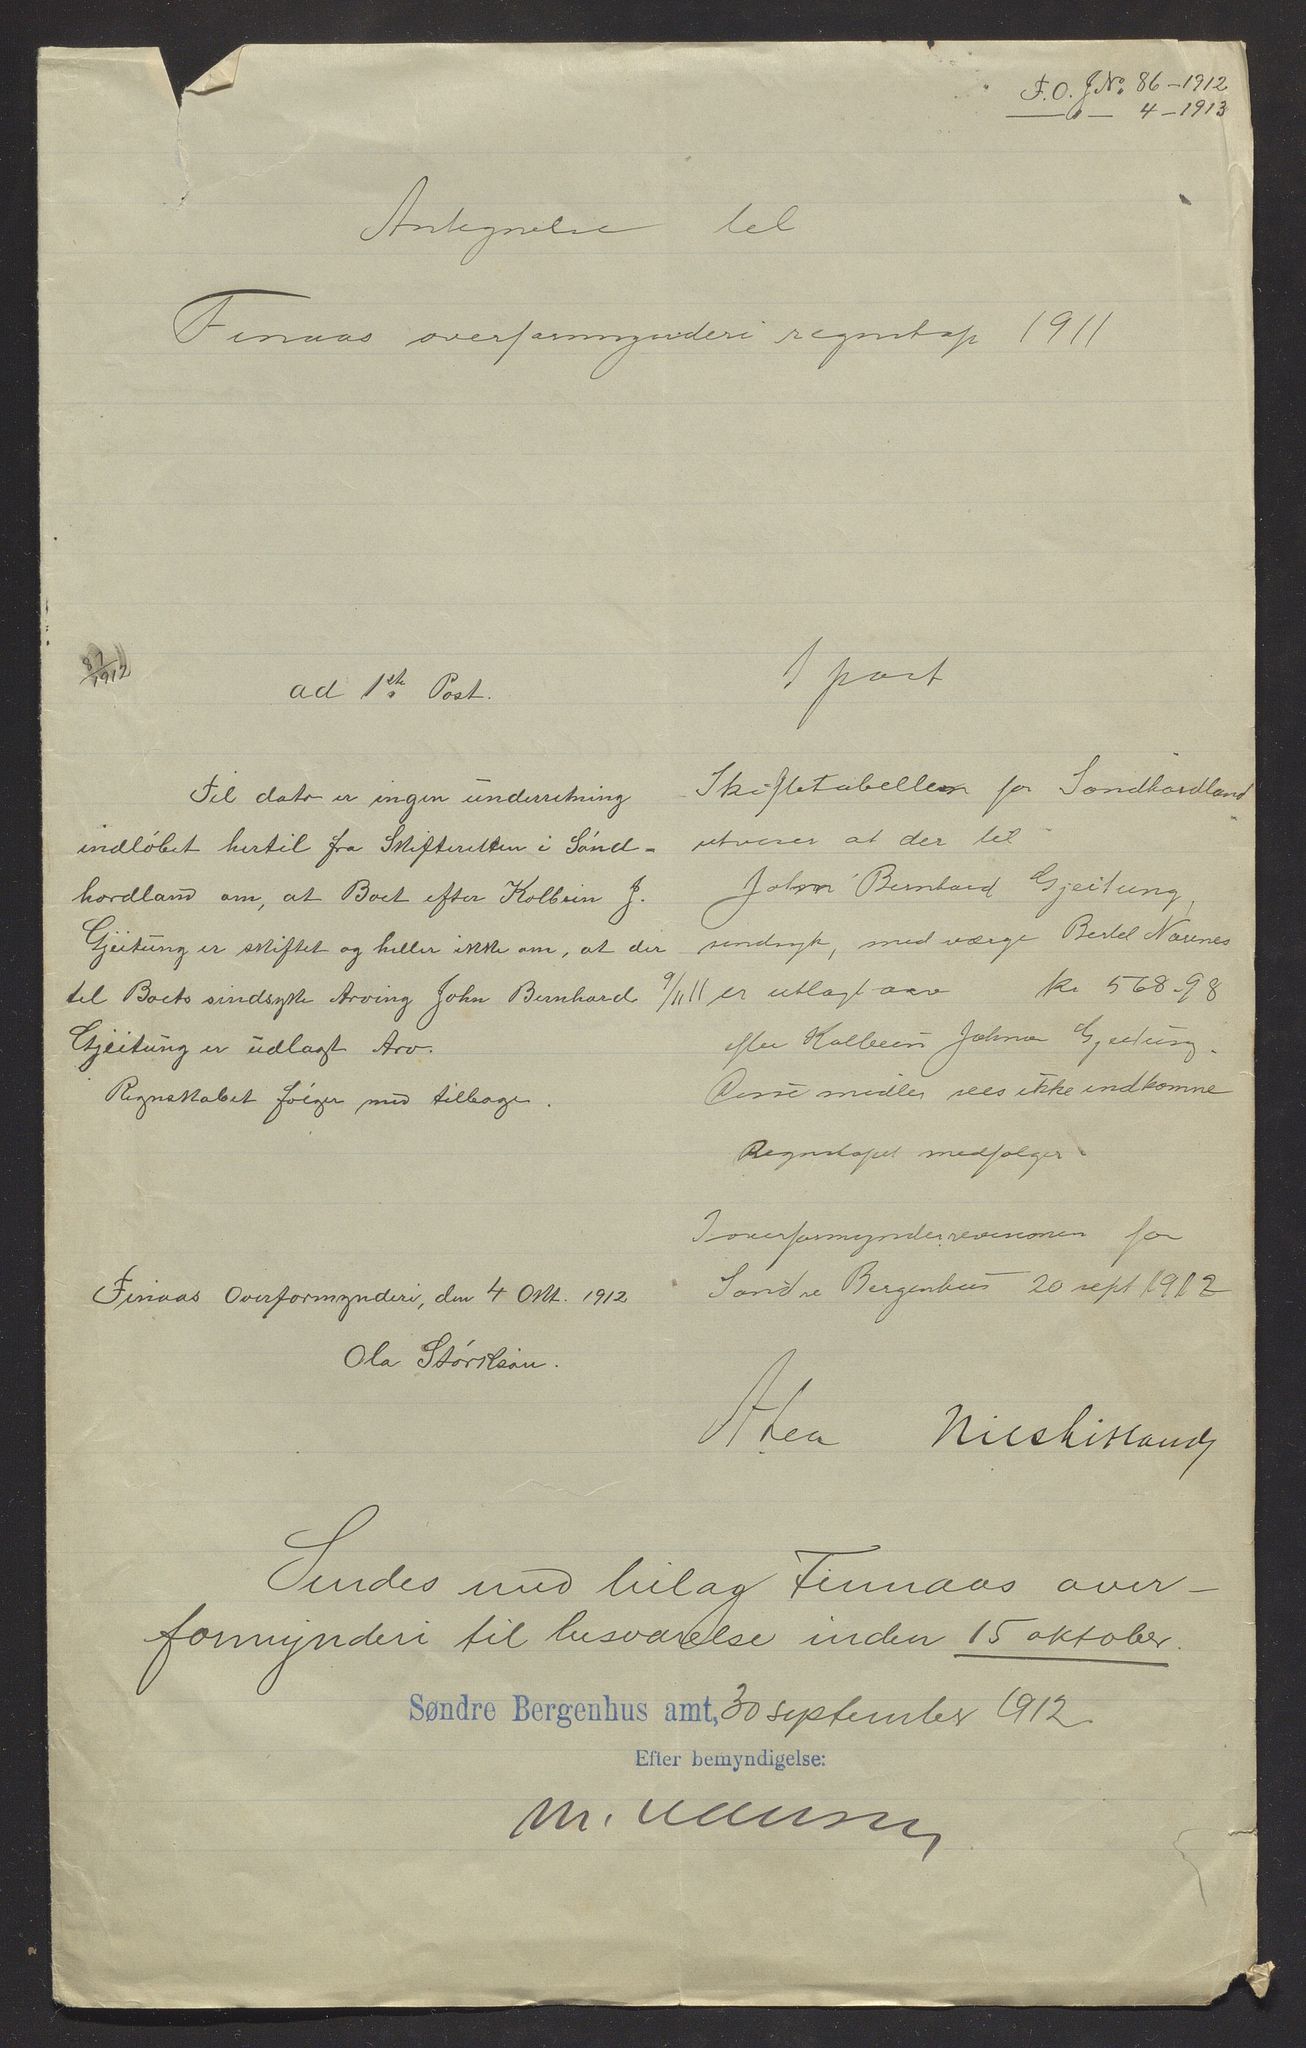 F.O. J.No. 86-1912
— " — 4-1913
Antegnelse til
Finaas overformynderi regnskap 1911
87/1912
ad 1ste Post.
Til dato er ingen underretning
indløbet hertil fra Skifteretten i Sønd-
hordland om, at Boet efter Kolbein J.
Gjeitung er skiftet og heller ikke om, at der
til Boets sindsyke Arving John Bernhard
Gjeitung er udlagt Arv.
Regnskabet følger med tilbage.
Finaas Overformynderi, den 4 Okt. 1912
Ola Størkson.
1 post
Skiftetabellen for Søndhordland
utviser at der til
John Bernhard Gjeitung,
sindsyk, med værge Bertel Normes
9/11 11 er utlagt arv kr 568.98
efter Kolbein Johns Gjeitung.
Disse midler sees ikke indkomne
Regnskapet medfølger.
I overformynderrevisionen for
Søndre Bergenhus 20 sept 1912
Nils Litland
Sendes med bilag Finnaas over-
formynderi til besvarelse inden 15 oktober.
Søndre Bergenhus amt, 30 september 1912
Efter bemyndigelse:
M.